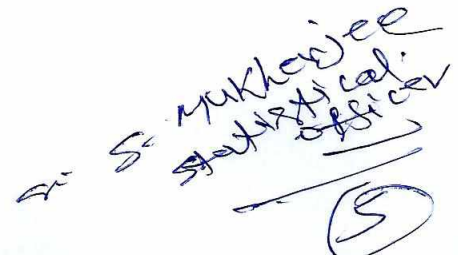 S. Mukherjee
statistical
officer
5